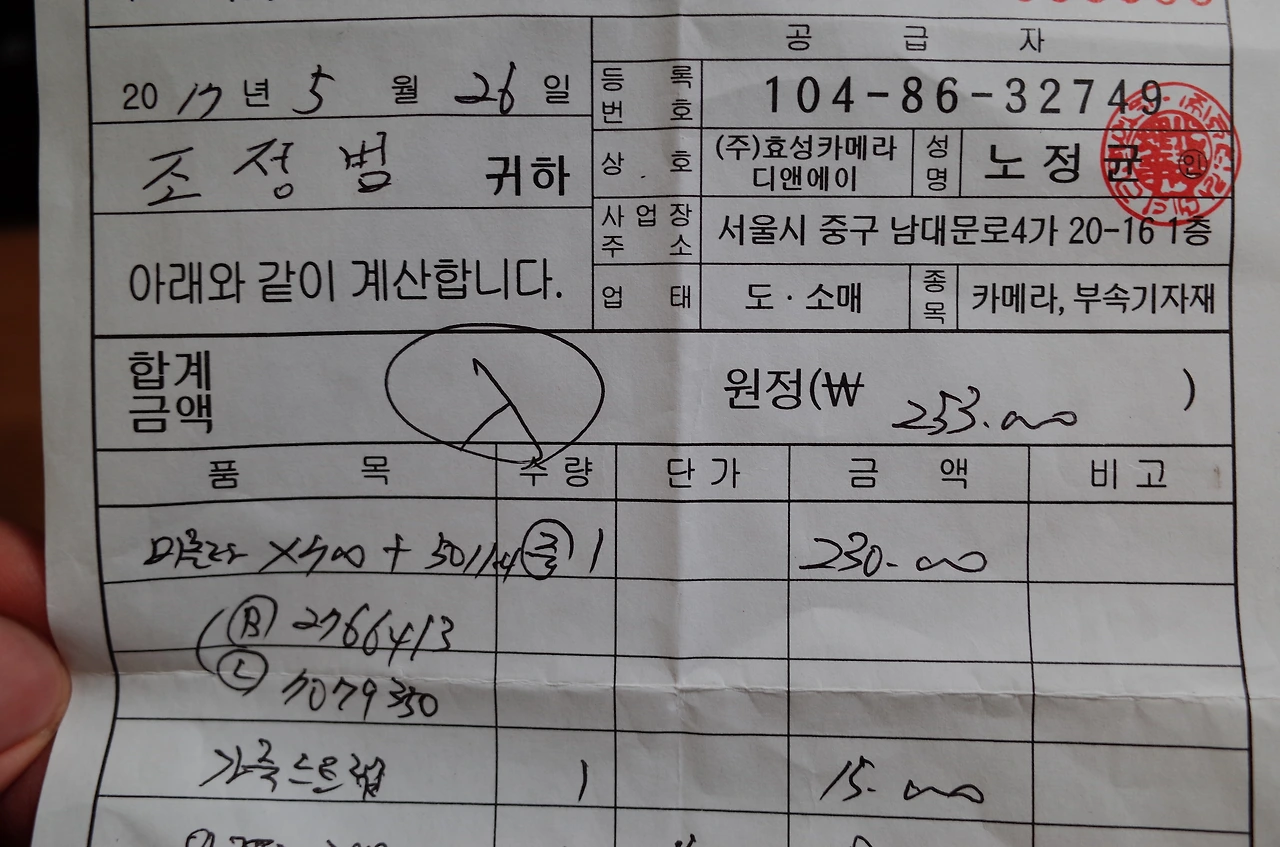 공급자
2017년 5월 26일
등록번호 104-86-32749
조정범 귀하
상호 (주)효성카메라 디앤에이 성명 노정균 인
사업장주소 서울시 중구 남대문로4가 20-16 1층
아래와 같이 계산합니다.
업태 도·소매 종목 카메라, 부속기자재
합계금액 원정(₩ 253.000 )
품목 수량 단가 금액 비고
미놀타 X700 + 50/1.4 중 1 230.000
B 2766413
L 7079350
가죽스트랩 1 15.000